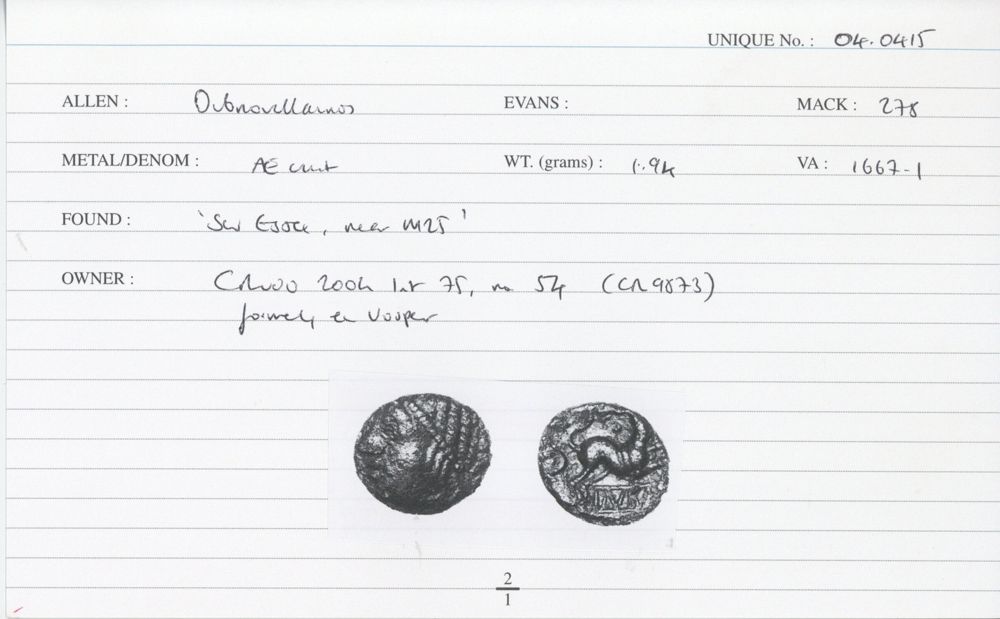 UNIQUE No. : 04.0415
ALLEN : Dubnovellaunos EVANS : MACK : 278
METAL/DENOM : AE unit WT. (grams) : 1.94 VA : 1667-1
FOUND : 'SW Essex, near M25'
OWNER : 2004 list 75, no 54 (CR 9873)
formerly
2
1